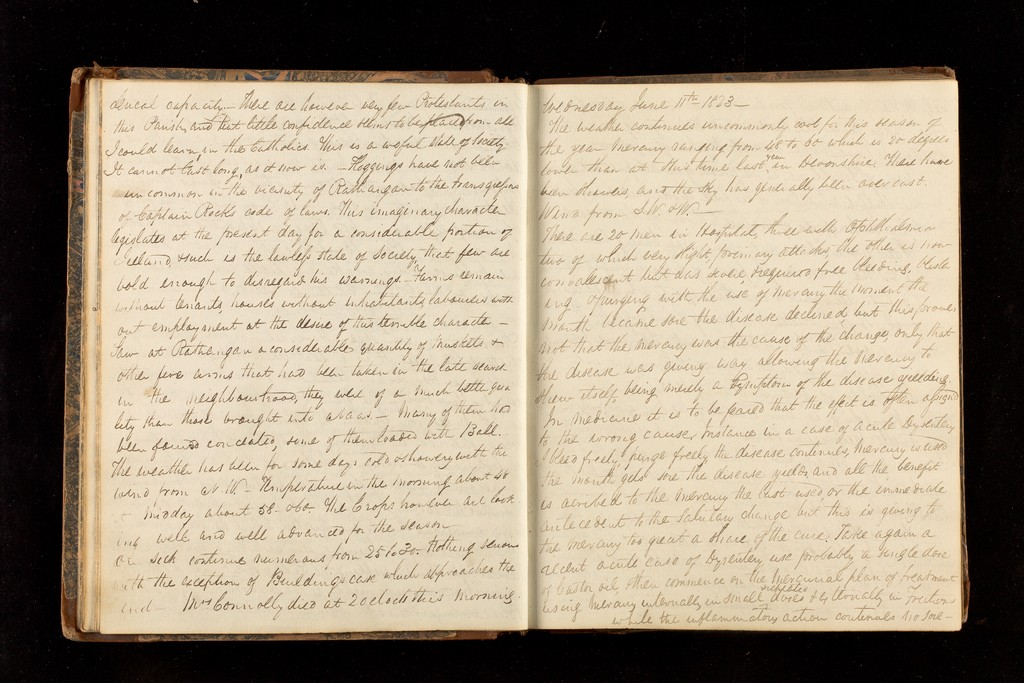 capacity - There are however very few Protestants in
this Parish, and that little confidence seems to be placed from all
I could learn, in the Catholics. This is a woful state of Society
It cannot last long, as it now is. - Floggings have not been
uncommon in the vicinity of Rathangan to the transgressors
of Captain Rock's code of laws. This imaginary character
legislates at the present day for a considerable portion of
Ireland, & such is the lawless state of Society, that few are
bold enough to disregard his warnings. - Farms remain
without tenants, houses without inhabitants, labourers with
out employment at the desire of this terrible character -
Saw at Rathangan a considerable quantity of muskets &
other fire arms that had been taken in the late search
in the neighbourhood, they were of a much better qua
lity than those brought into - Many of them had
been found concealed, some of them loaded with Ball.
The weather has been for some days cold & showery with the
wind from N.W. - Temperature in the morning about 48
- midday about 58. or 60. The Crops however are look
ing well and well advanced for the season
Our sick continue numerous, from 25 to 30. Nothing serious
with the exception of Buildings case which approaches the
end - Mrs Connolly died at 2 oclock this morning.
Wednesday June 11th 1823 -
The weather continues uncommonly cool for this season of
the year Mercury ranging from 48 to 60 which is 20 degrees
lower than at this time last year in Devonshire. There have
been showers, and the sky has generally been overcast.
Wind from S.W. & W. -
There are 20 men in Hospital, three with Ophthalmia
two of which very slight, primary attacks, the other is now
convalescent but was severe, & required free bleeding, blister
ing, & purging with the use of mercury the moment the
Mouth became sore the disease declined but this proves
not that the mercury was the cause of the change, only that
the disease was giving way allowing the mercury to
shew itself, being merely a Symptom of the disease yielding.
In medicine it is to be feared that the effect is often assigned
to the wrong cause, Instance in a case of acute Dysentery
I bleed freely, purge freely the disease continues, Mercury is used
the mouth gets sore the disease yields and all the benefit
is ascribed to the mercury the last used, or the immediate
antecedent to the salutary change but this is giving to
the mercury too great a share of the cure. Take again a
recent acute case of Dysentery use probably a single dose
of Castor oil, then commence on the mercurial plan of treatment
using Mercury internally, in small repeated doses & externally in Frictions
while the inflammatory action continues no sore -